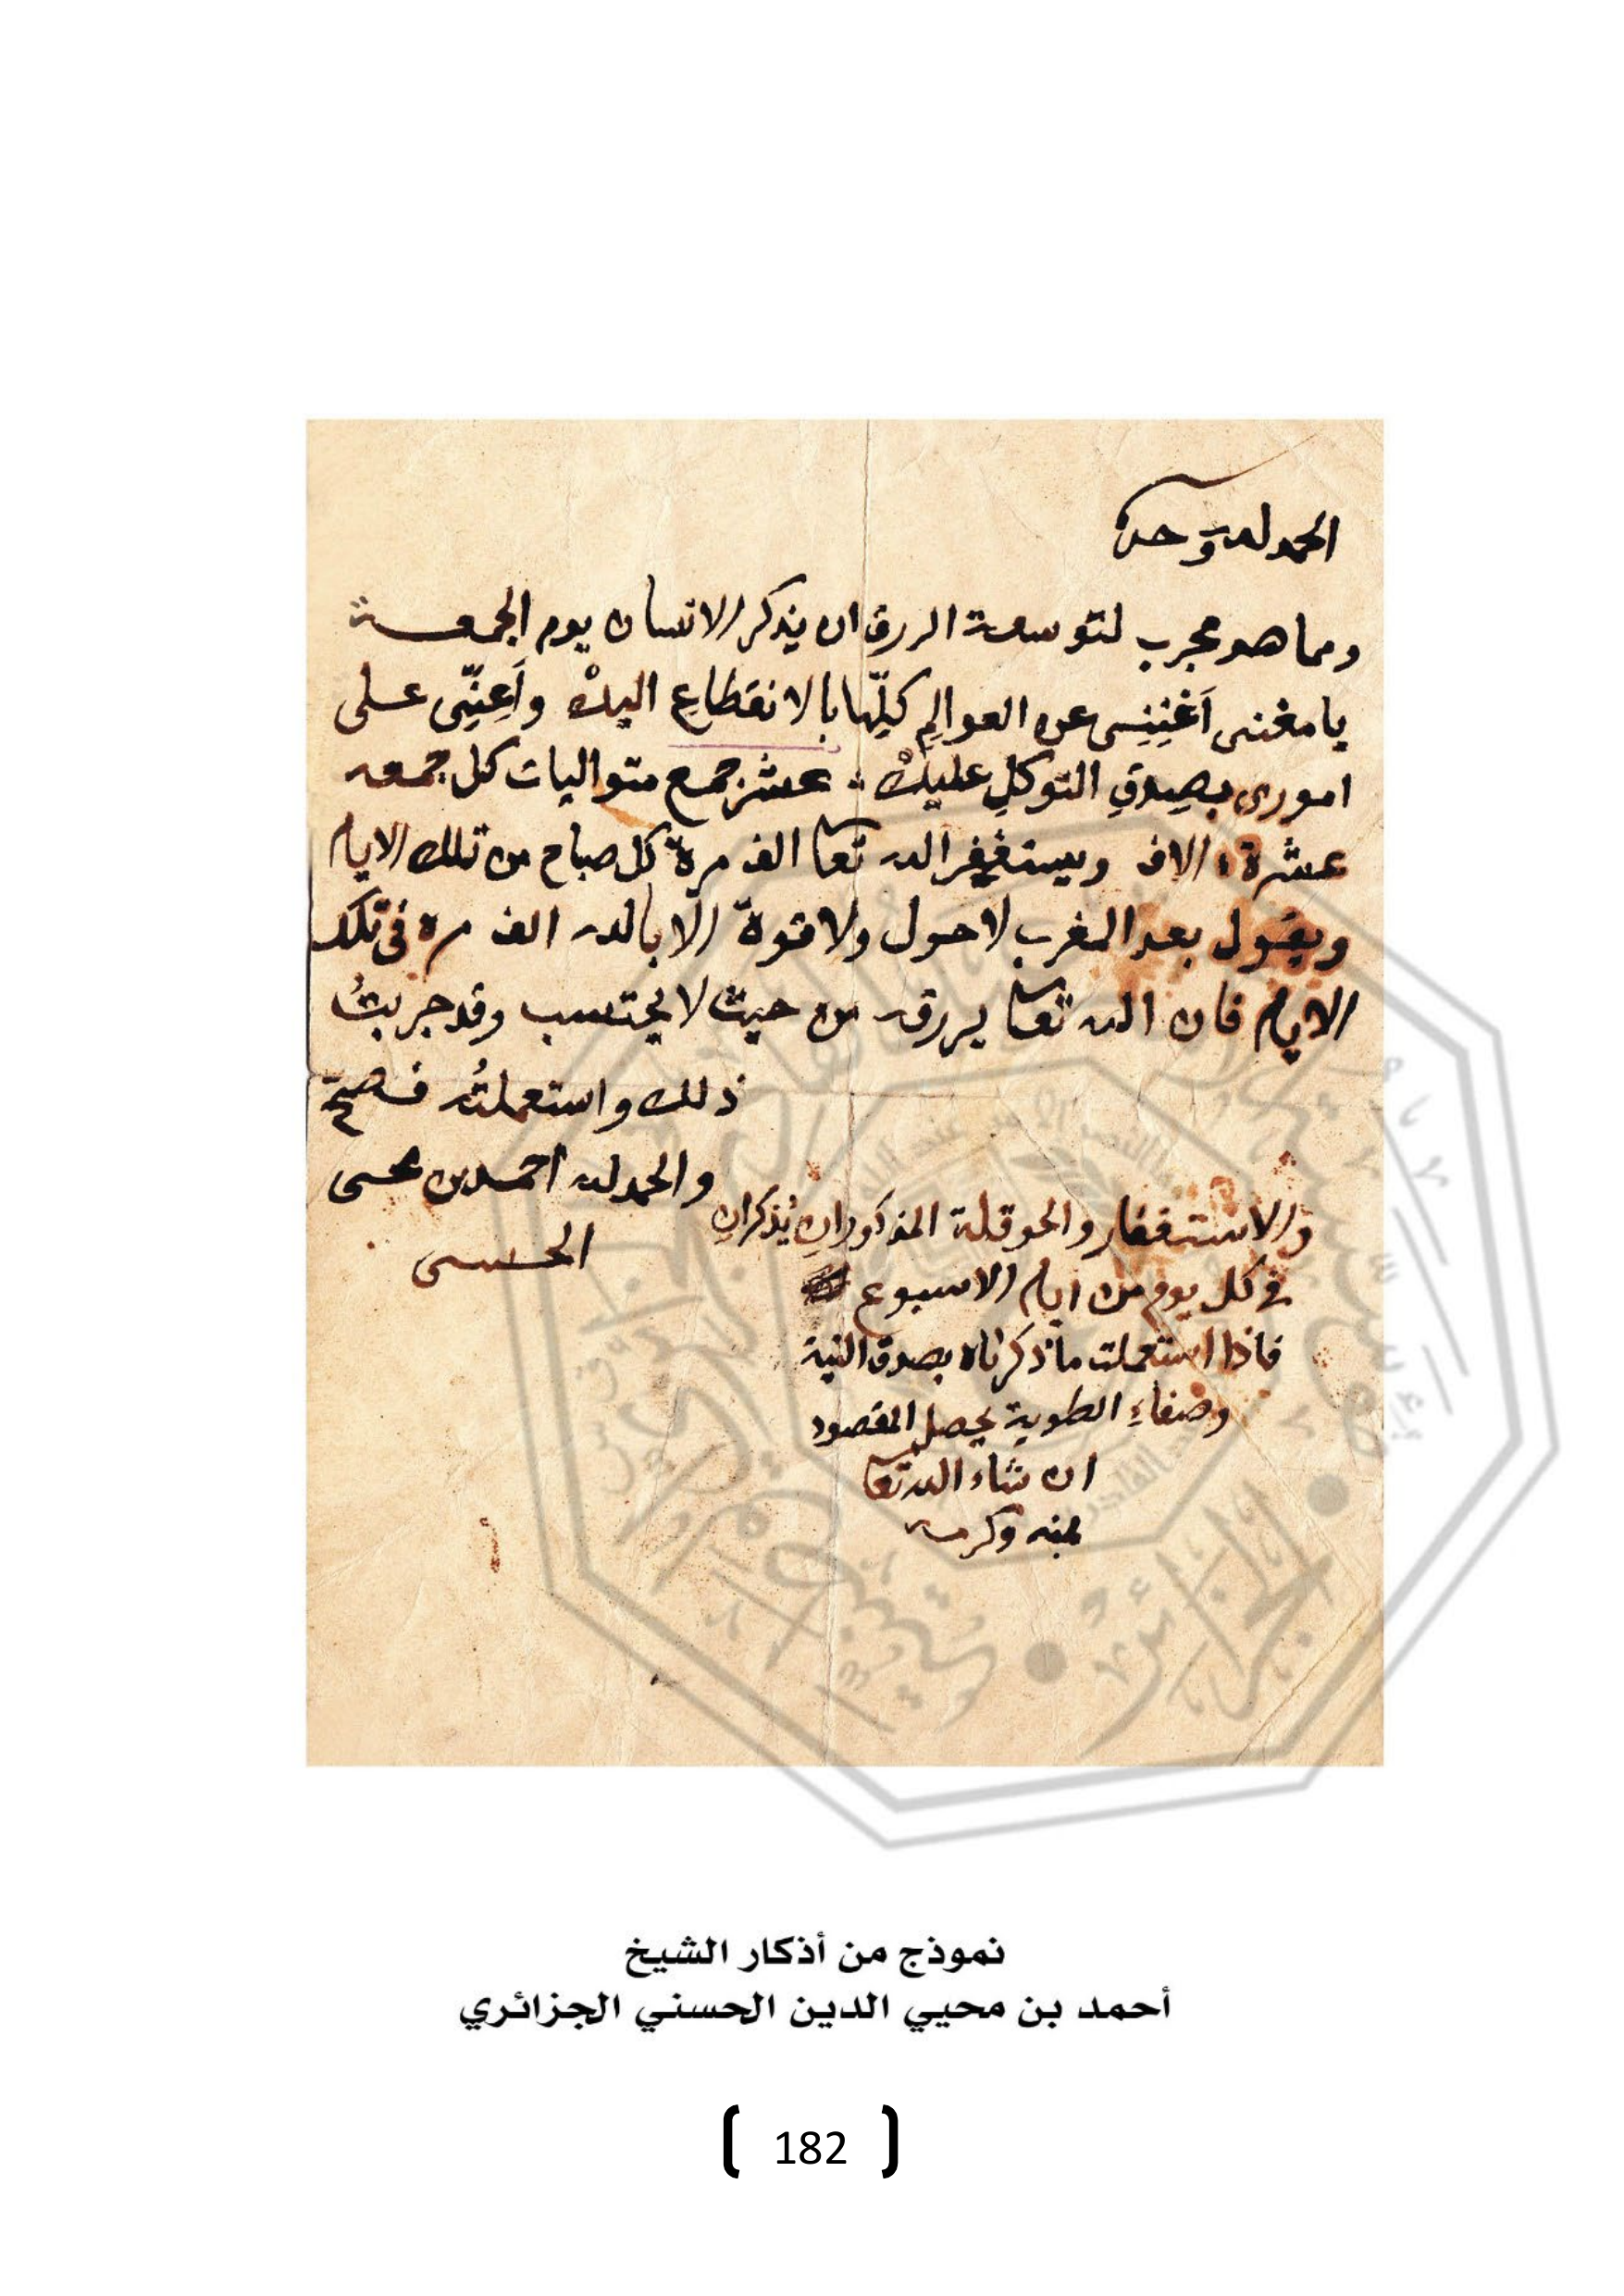 الحمد لله وحده
ومما هو مجرب لتوسعة الرزق ان يذكر الانسان يوم الجمعة
يا مغنى اَغنِنِى عن العوالمِ كلِّها بالانقطاعِ اليكْ واَعِنِّى على
امورى بصِدقِ التوكلِ عليكْ عشر جمع متواليات كل جمعه
عشرة ءالاف ويستغفر الله تعا الف مرة كل صباح من تلك الايام
ويقول بعد المغرب لا حول ولا قوة الا بالله الف مره فى تلك
الايام فان الله تعا يرزقه من حيث لا يحتسب وقد جربتُ
ذلك واستعملتُه فصح
والحمد لله احمد بن محيى
الحسنى
والاستغفار والحوقلة المذكورانِ يُذكرانِ
في كل يوم من ايام الاسبوع
فاذا استعملت ما ذكرناه بصدق النية
وصفاءِ الطوية يحصل المقصود
ان شاء الله تعا
بمنه وكرمه
نموذج من أذكار الشيخ
أحمد بن محيي الدين الحسني الجزائري
182